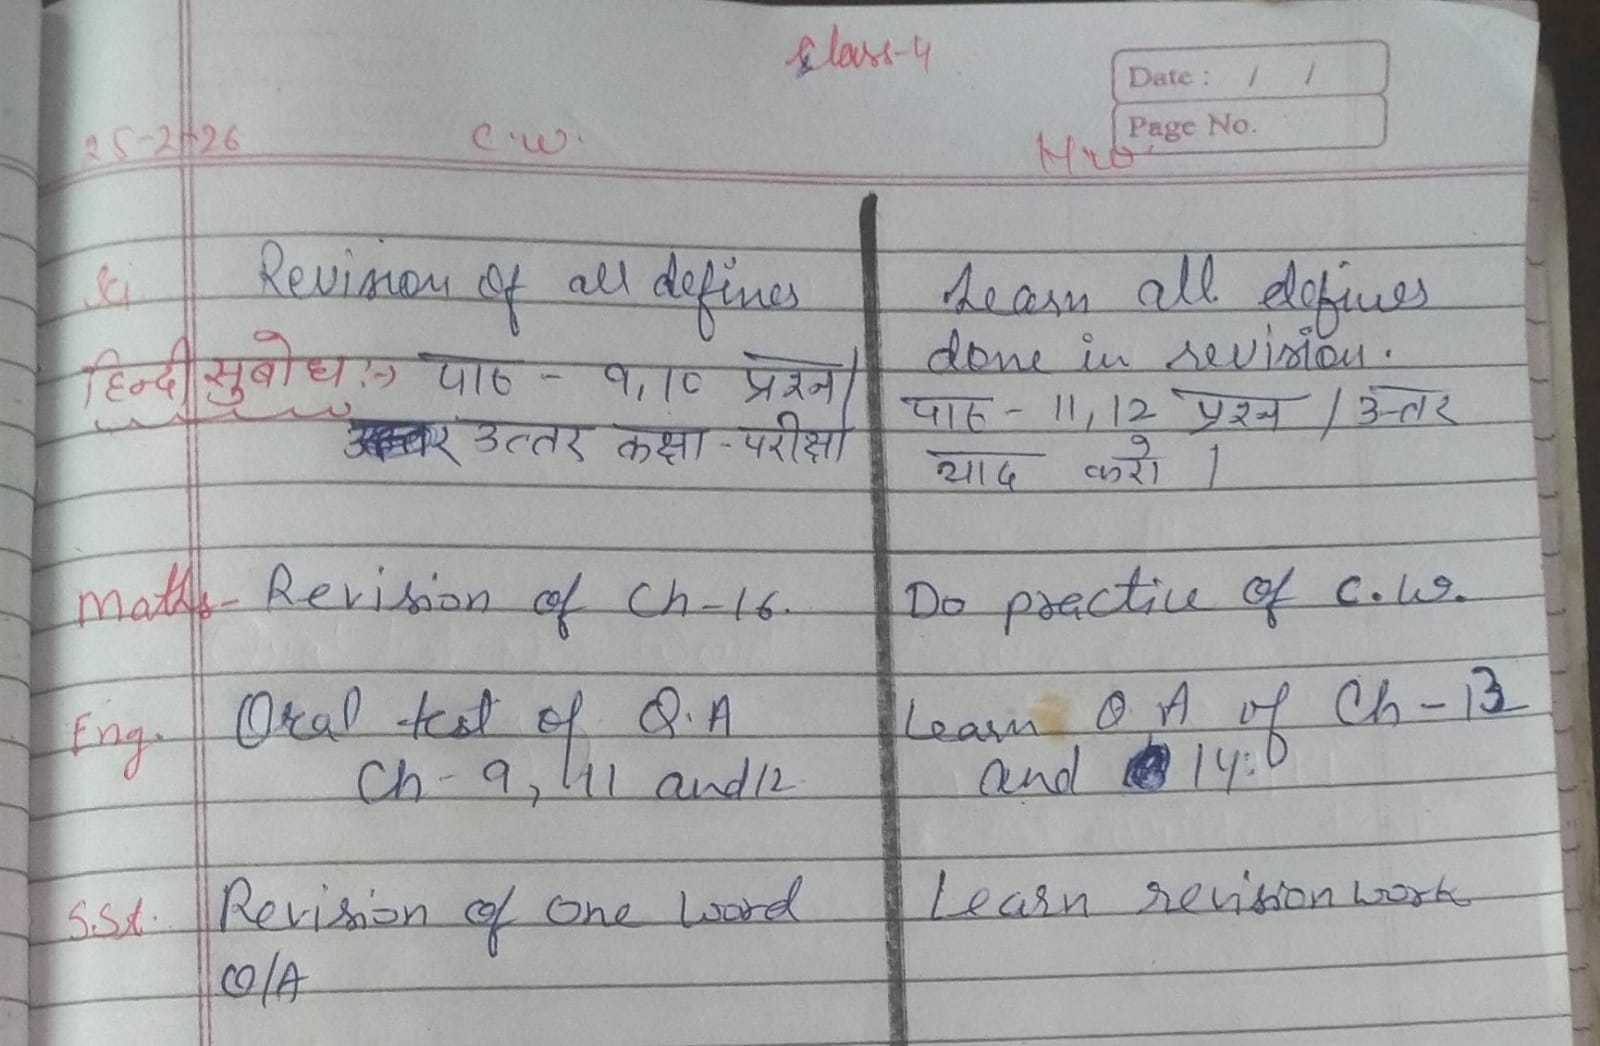 Class-4
Date : / /
Page No.
25-2-26 C.W. H.W.
Sci Revision of all defines Learn all defines
done in revision.
हिन्दी सुबोध :-> पाठ - 9,10 प्रश्न/ पाठ - 11,12 प्रश्न / उत्तर
उत्तर कक्षा - परीक्षा याद करो ।
Maths- Revision of Ch-16. Do practice of C.W.
Eng. Oral test of Q.A Learn Q.A of Ch-13
Ch-9, 11 and 12 and 14.
S.St. Revision of one word Learn revision work
Q/A